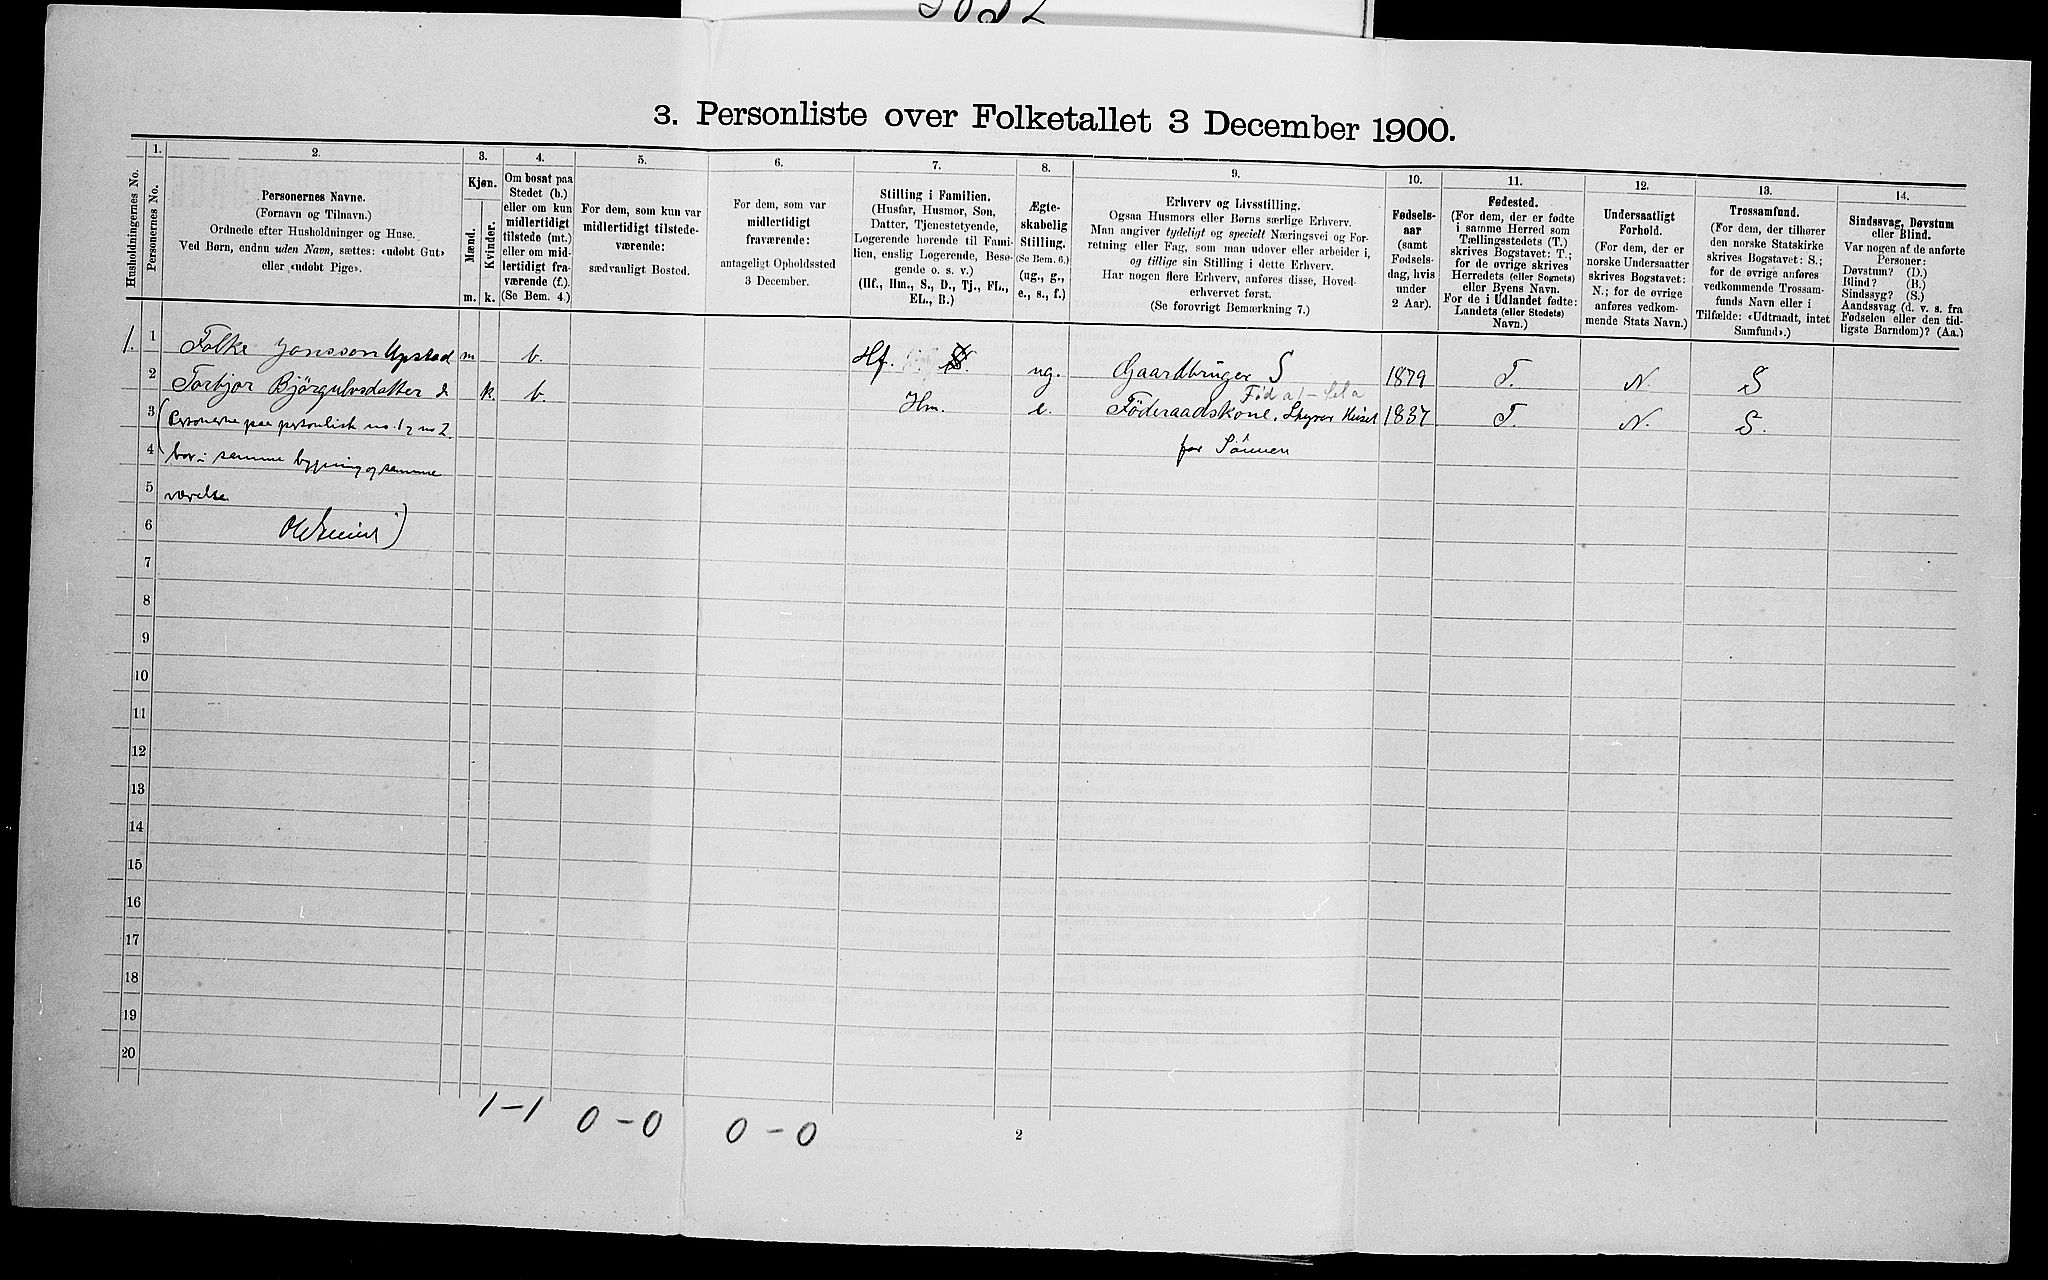 3. Personliste over Folketallet 3 December 1900.
Husholdningernes No.
1.
Personernes No.
2.
Personernes Navne.
(Fornavn og Tilnavn.)
Ordnede efter Husholdninger og Huse.
Ved Børn, endnu uden Navn, sættes: «udøbt Gut»
eller «udøbt Pige».
3.
Kjøn.
Mænd.
Kvinder.
m. k.
4.
Om bosat paa
Stedet (b.)
eller om kun
midlertidigt
tilstede (mt.)
eller om mid-
lertidigt fra-
værende (f.).
(Se Bem. 4.)
5.
For dem, som kun var
midlertidigt tilstede-
værende:
sædvanligt Bosted.
6.
For dem, som var
midlertidigt
fraværende:
antageligt Opholdssted
3 December.
7.
Stilling i Familien.
(Husfar, Husmor, Søn,
Datter, Tjenestetyende,
Logerende hørende til Fami-
lien, enslig Logerende, Besø-
gende o. s. v.)
(Hf., Hm., S., D., Tj., FL.,
EL., B.)
8.
Ægte-
skabelig
Stilling.
(Se Bem. 6.)
(ug., g.,
e., s., f.)
9.
Erhverv og Livsstilling.
Ogsaa Husmors eller Børns særlige Erhverv.
Man angiver tydeligt og specielt Næringsvei og For-
retning eller Fag, som man udøver eller arbeider i,
og tillige sin Stilling i dette Erhverv.
Har nogen flere Erhverv, anføres disse, Hoved-
erhvervet først.
(Se forøvrigt Bemærkning 7.)
10.
Fødsels-
aar
(samt
Fødsels-
dag, hvis
under
2 Aar).
11.
Fødested.
(For dem, der er fødte
i samme Herred som
Tællingsstedets (T.)
skrives Bogstavet: T.;
for de øvrige skrives
Herredets (eller Sognets)
eller Byens Navn.
For de i Udlandet fødte:
Landets (eller Stedets)
Navn.)
12.
Undersaatligt
Forhold.
(For dem, der er
norske Undersaatter
skrives Bogstavet:
N.; for de øvrige
anføres vedkom-
mende Stats Navn.)
13.
Trossamfund.
(For dem, der tilhører
den norske Statskirke
skrives Bogstavet: S.;
for de øvrige anføres
vedkommende Trossam-
funds Navn eller i
Tilfælde: «Udtraadt, intet
Samfund».)
14.
Sindssvag, Døvstum
eller Blind.
Var nogen af de anførte
Personer:
Døvstum? (D.)
Blind? (B.)
Sindssyg? (S.)
Aandssvag (d. v. s. fra
Fødselen eller den tid-
ligste Barndom)? (Aa.)
1. 1 Folke Jonsson Upstad m b. Hf. ug. Gaardbruger S 1879 T. N. S
2 Torbjør Bjørgulvsdatter k. b. Hm. e. Föderaadskone. Styrer Huset 1837 T. N. S.
for Sönnen
3 (Personerne paa personliste no. 1 og no 2.
4 bor i samme bygning og samme
5 værelse.
6
7
8
9
10
11
12
13
14
15
16
17
18
19
20
1-1 0-0 0-0
2